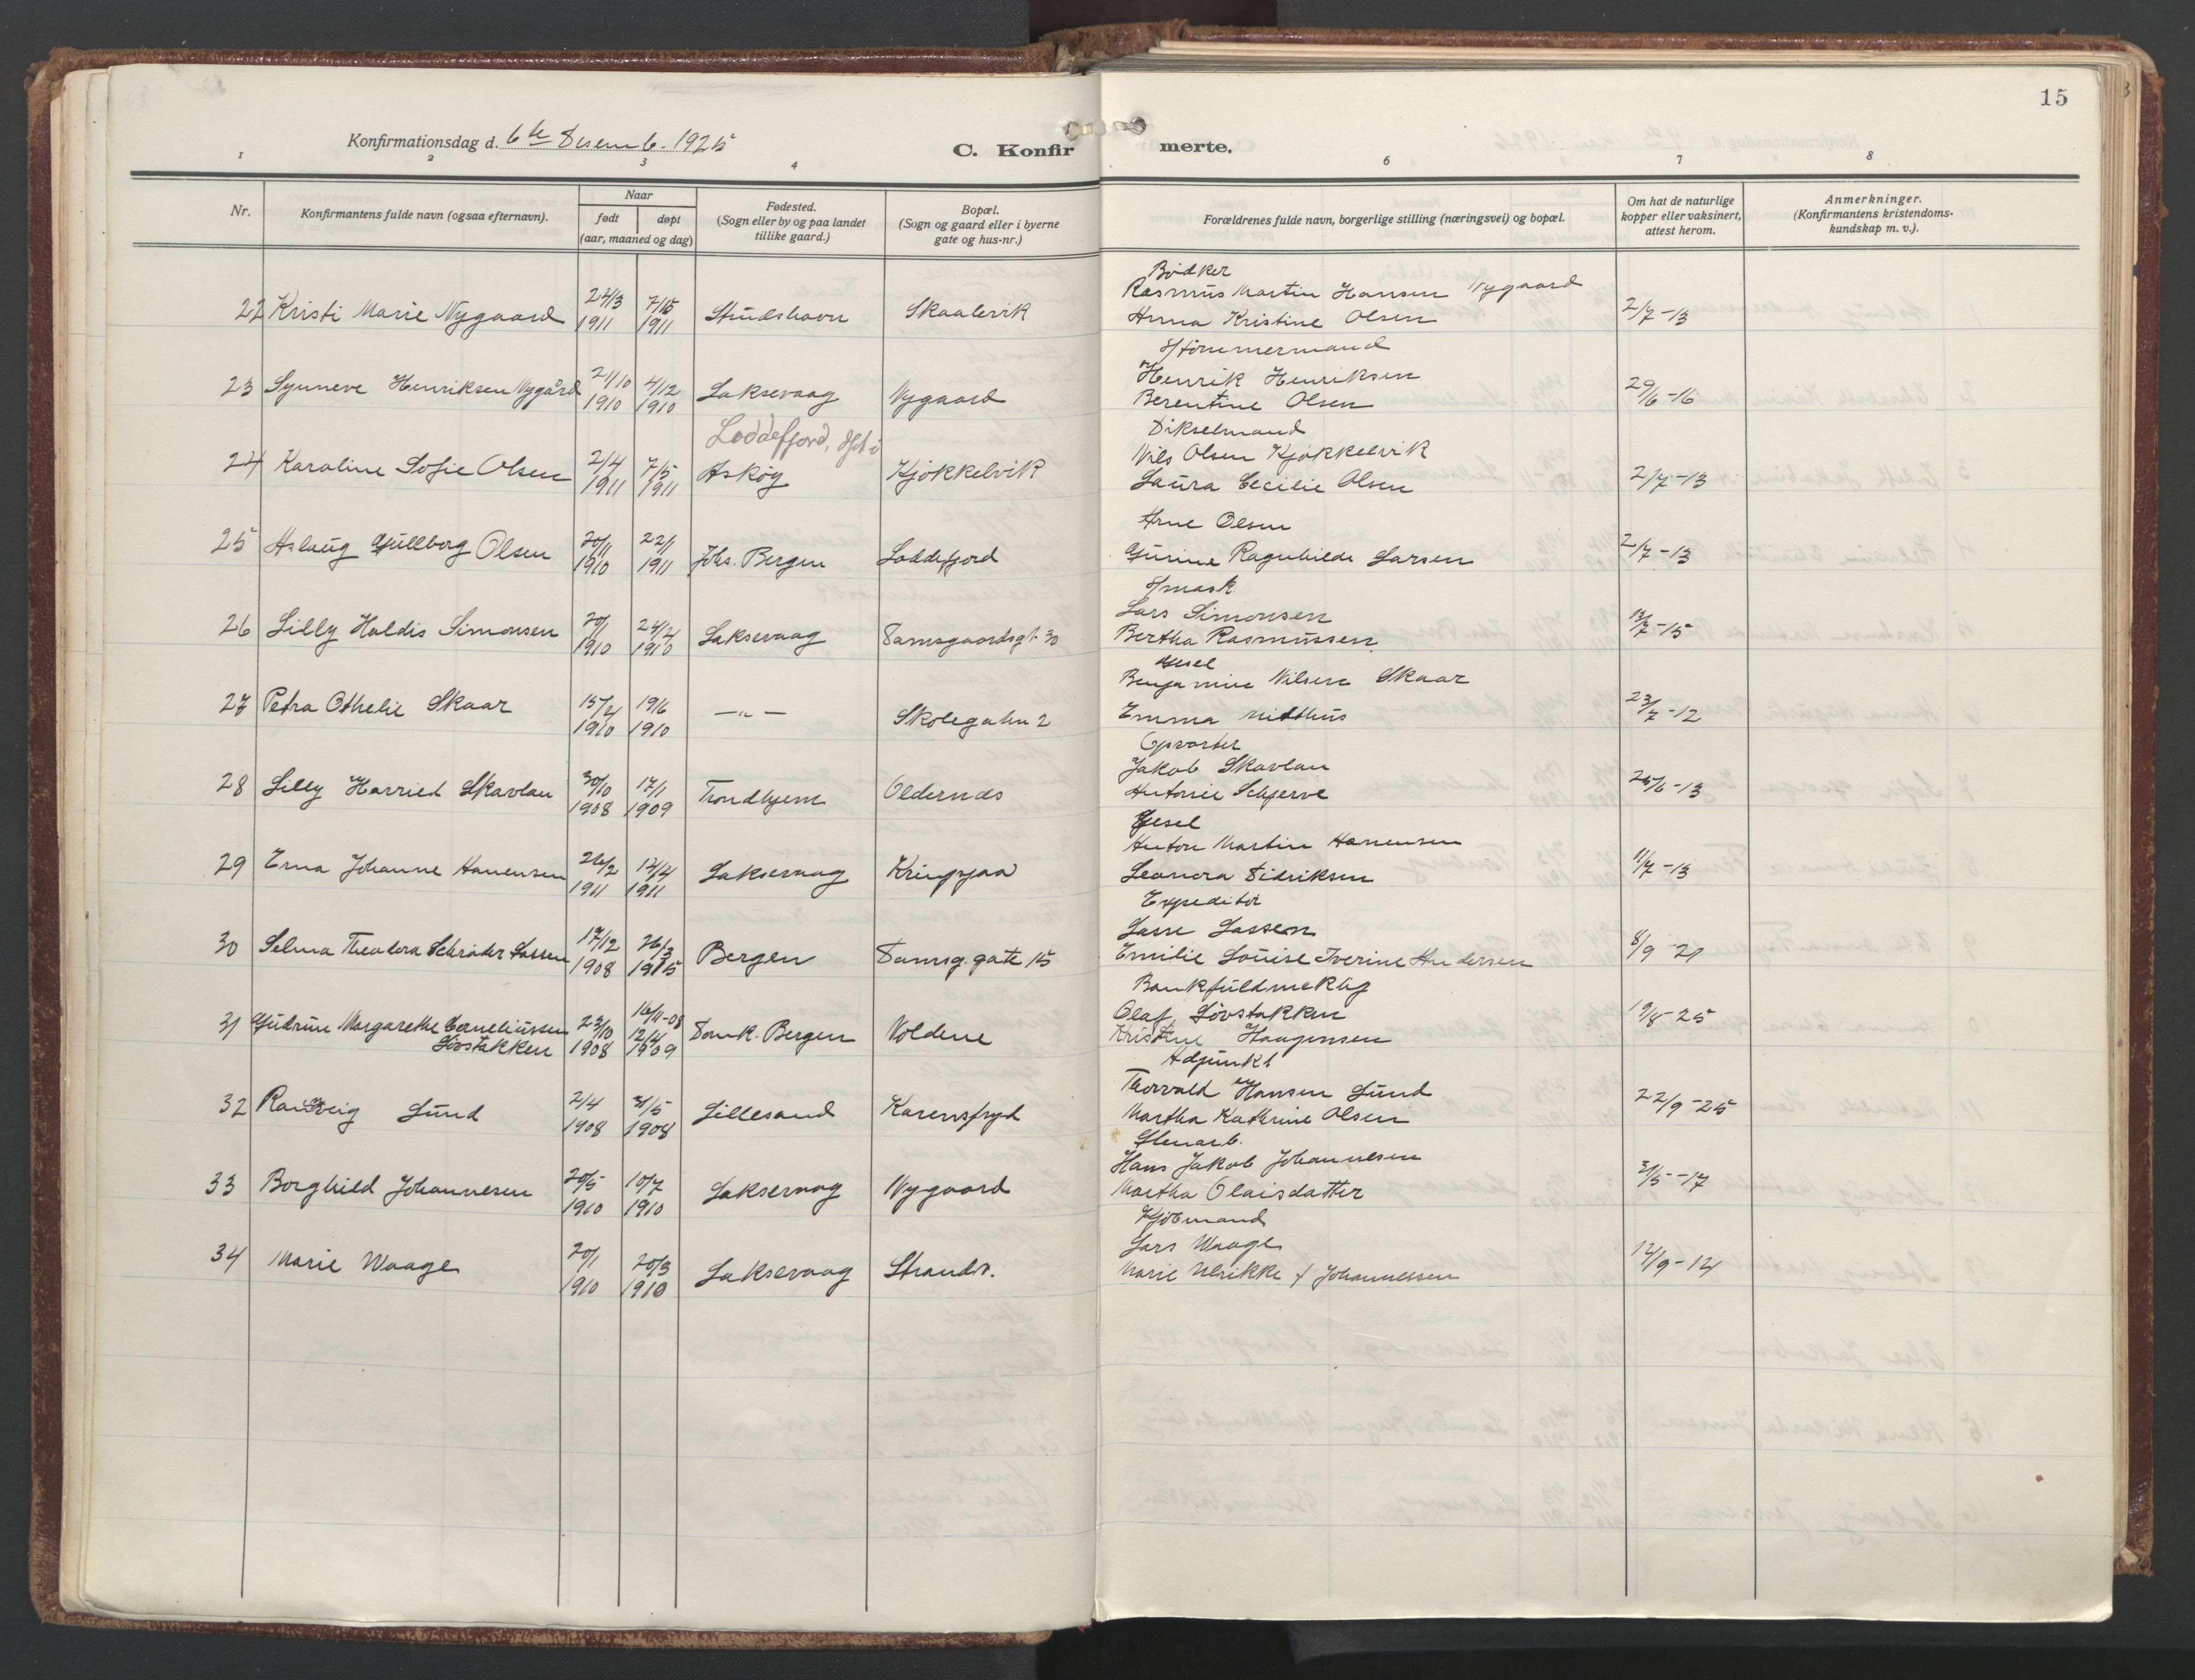 15
Konfirmationsdag d. 6te Desemb. 1925
C. Konfirmerte.
1 2 3 4 6 7 8
Nr.
Konfirmantens fulde navn (ogsaa efternavn).
Naar
født døpt
(aar, maaned og dag)
Fødested.
(Sogn eller by og paa landet
tillike gaard.)
Bopæl.
(Sogn og gaard eller i byerne
gate og hus-nr.)
Forældrenes fulde navn, borgerlige stilling (næringsvei) og bopæl.
Om hat de naturlige
kopper eller vaksinert,
attest herom.
Anmerkninger.
(Konfirmantens kristendoms-
kundskap m. v.).
Bødker
Rasmus Martin Hansen Nygaard
22 Kristi Marie Nygaard 24/3 1911 7/5 1911 Studshavn Skaalevik Anna Kristine Olsen 2/7-13
Tømmermand
Henrik Henriksen
23 Synneve Henriksen Nygård 21/10 1910 4/12 1910 Laksevaag Nygaard Berentine Olsen 29/6-16
Loddefjord, dpt i
Dikselmand
Nils Olsen Kjøkkelvik
24 Karoline Sofie Olsen 2/4 1911 7/5 1911 Askøy Kjøkkelvik Laura Cecilie Olsen 2/7-13
Arne Olsen
25 Aslaug Gullborg Olsen 20/11 1910 22/1 1911 Johs. Bergen Loddefjord Gurine Ragnhilde Larsen 2/7-13
Lars Simonsen
26 Lilly Haldis Simonsen 20/1 1910 24/4 1910 Laksevaag Damsgaardsgt 30 Bertha Rasmussen 13/7-15
Benjamin Nilsen Skaar
27 Petra Othelie Skaar 15/4 1910 19/6 1910 —"— Skolegahn 2 Emma Midthus 23/7-12
Opvarter
Jakob Skavlan
28 Lilly Harried Skavlan 30/10 1908 17/1 1909 Trondhjem Oldernes Antonie Schjerve 25/6-13
Gesel
Anton Martin Hannensen
29 Erna Johanne Hanensen 26/2 1911 17/4 1911 Laksevaag Kringsjaa Leonora Didriksen 11/7-13
Expeditør
Lasse Lassen
30 Selma Theodora Schrøder Lassen 17/12 1908 26/3 1915 Bergen Damsg. gate 15 Emilie Louise Iverine Andersen 8/9-21
Bankfuldmektig
Olaf Løvstakken
31 Gudrun Margarethe Corneliussen Løvstakken 23/10 1908 16/11-08 12/4 1909 Domk. Bergen Noldene Kristine Haagensen 19/8-25
Adjunkt
Thorvald Hansen Lund
32 Randveig Lund 2/4 1908 31/5 1908 Lillesand Karensfryd Martha Kathrine Olsen 22/9-25
Stenarb.
Hans Jakob Johannesen
33 Borghild Johannesen 20/5 1910 10/7 1910 Laksevaag Nygaard Martha Olaisdatter 3/5-17
Kjøbmand
Lars Waage
34 Marie Waage 20/1 1910 20/3 1910 Laksevaag Strandv. Marie Ulrikke f Johannessen 12/9-14